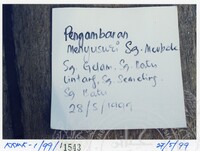 Pengambaran
Menyusuri Sg. Merbok
Sg. Gelam. Sg. Batu
Lintang, Sg. Semeling
Sg. Batu
28/5/1999
KRMK-1/99/11543
28/5/99